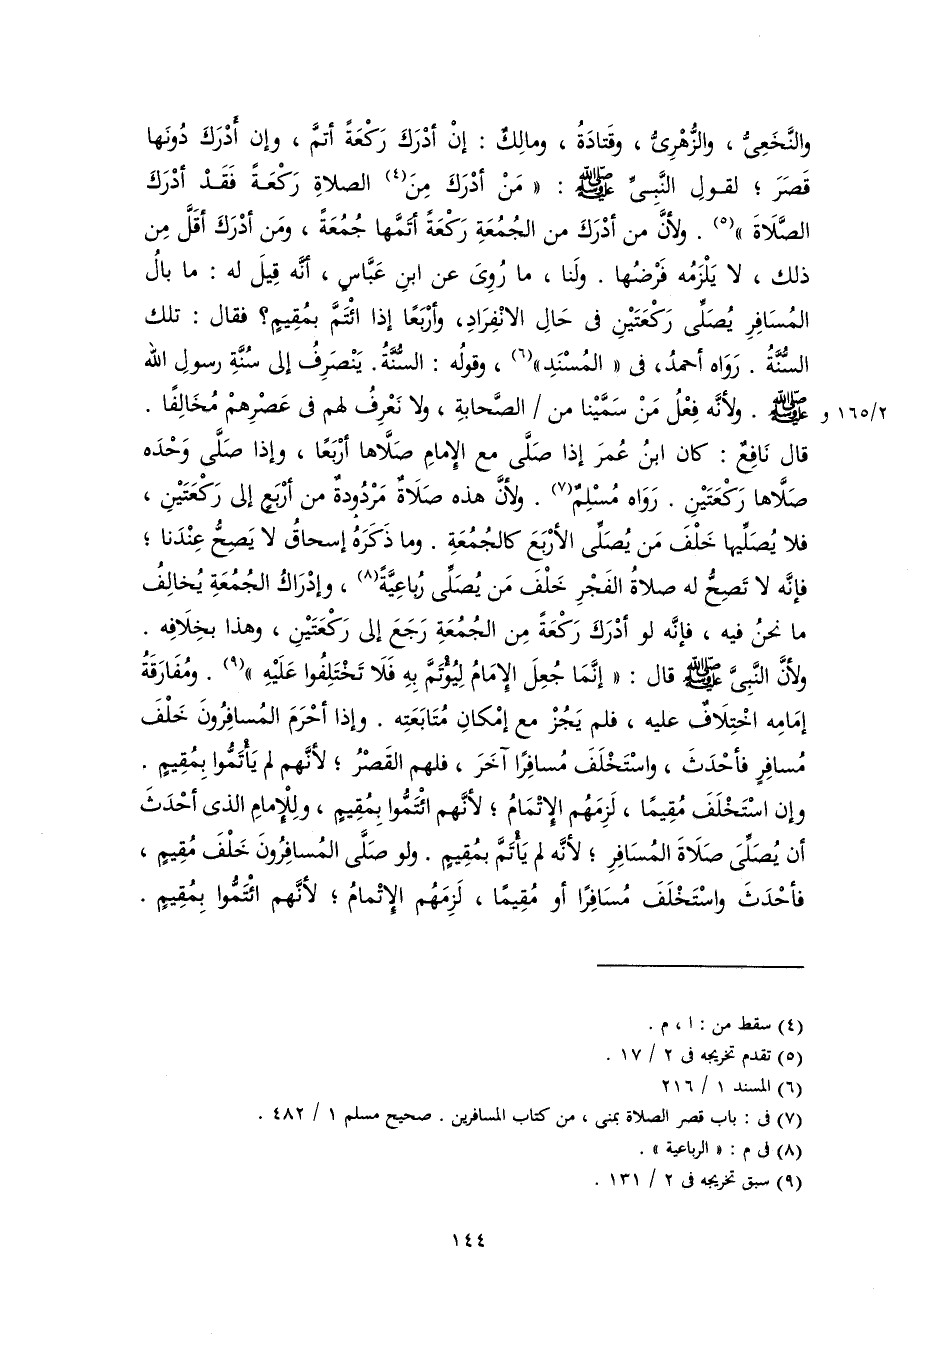 والنَّخَعِىُّ ، والزُّهْرِىُّ ، وقَتادَةُ ، ومالِكٌ : إنْ أدْرَكَ رَكْعَةً أتمَّ ، وإن أَدْرَكَ دُونَها
قَصَرَ ؛ لقولِ النَّبِىِّ ﷺ : « مَنْ أدْرَكَ مِنَ(٤) الصلاةِ رَكْعَةً فَقَدْ أدْرَكَ
الصَّلَاةَ »(٥) . ولأنَّ من أدْرَكَ من الجُمُعَةِ رَكْعَةً أتَمَّها جُمُعَةً ، ومَن أدْرَكَ أقَلَّ مِن
ذلك ، لا يَلْزَمُه فَرْضُها . ولَنا ، ما رُوِىَ عن ابنِ عَبَّاسٍ ، أنَّه قِيلَ له : ما بالُ
المُسَافِرِ يُصَلِّى رَكْعَتَيْنِ فى حَالِ الانْفِرَادِ، وأرْبَعًا إذا ائْتَمَّ بمُقِيمٍ؟ فقال : تلك
السُّنَّةُ . رَوَاه أحمدُ، فى « المُسْنَدِ»(٦) ، وقولُه : السُّنَّةُ. يَنْصَرِفُ إلى سُنَّةِ رسولِ اللهِ
ﷺ . ولأنَّه فِعْلُ مَنْ سَمَّيْنا من / الصَّحابةِ ، ولا نَعْرِفُ لهم فى عَصْرِهِمْ مُخَالِفًا . ١٦٥/٢ و
قال نَافِعٌ : كان ابنُ عُمرَ إذا صَلَّى مع الإِمامِ صَلَّاها أرْبَعًا ، وإذا صَلَّى وَحْدَه
صَلَّاها رَكْعَتَيْنِ . رَوَاه مُسْلِمٌ(٧) . ولأنَّ هذه صَلَاةٌ مَرْدُودةٌ من أرْبَعٍ إلى رَكْعَتَيْنِ ،
فلا يُصَلِّيها خَلْفَ مَن يُصَلِّى الأرْبَعَ كالجُمُعَةِ . وما ذَكَرَهُ إسحاقُ لا يَصِحُّ عِنْدَنا ؛
فإنَّه لا تَصِحُّ له صلاةُ الفَجْرِ خَلْفَ مَن يُصَلِّى رُباعِيَّةً(٨) ، وإدْراكُ الجُمُعَةِ يُخالِفُ
ما نحنُ فيه ، فإنَّه لو أدْرَكَ رَكْعَةً مِن الجُمُعَةِ رَجَعَ إلى رَكْعَتَيْنِ ، وهذا بخِلَافِه .
ولأنَّ النَّبِىَّ ﷺ قال : « إنَّمَا جُعِلَ الإِمَامُ لِيُؤْتَمَّ بِهِ فَلَا تَخْتَلِفُوا عَلَيْهِ »(٩) . ومُفَارَقَةُ
إمَامِه اخْتِلَافٌ عليه ، فلم يَجُزْ مع إمْكانِ مُتَابَعَتِه . وإذا أحْرَمَ المُسافِرُونَ خَلْفَ
مُسافِرٍ فأحْدَثَ ، واسْتَخْلَفَ مُسافِرًا آخَرَ ، فلهم القَصْرُ ؛ لأنَّهم لم يَأْتَمُّوا بِمُقِيمٍ .
وإن اسْتَخْلَفَ مُقِيمًا ، لَزِمَهُم الإِتْمَامُ ؛ لأنَّهم ائْتَمُّوا بِمُقِيمٍ ، ولِلْإِمامِ الذى أحْدَثَ
أن يُصَلِّىَ صَلَاةَ المُسَافِرِ ؛ لأنَّه لم يَأْتَمَّ بمُقِيمٍ . ولو صَلَّى المُسافِرُونَ خَلْفَ مُقِيمٍ ،
فأحْدَثَ واسْتَخْلَفَ مُسَافِرًا أو مُقِيمًا ، لَزِمَهُم الإِتْمامُ ؛ لأنَّهم ائْتَمُّوا بِمُقِيمٍ .
(٤) سقط من : ا ، م .
(٥) تقدم تخريجه فى ٢ / ١٧ .
(٦) المسند ١ / ٢١٦
(٧) فى : باب قصر الصلاة بمنى ، من كتاب المسافرين . صحيح مسلم ١ / ٤٨٢ .
(٨) فى م : « الرباعية » .
(٩) سبق تخريجه فى ٢ / ١٣١ .
١٤٤